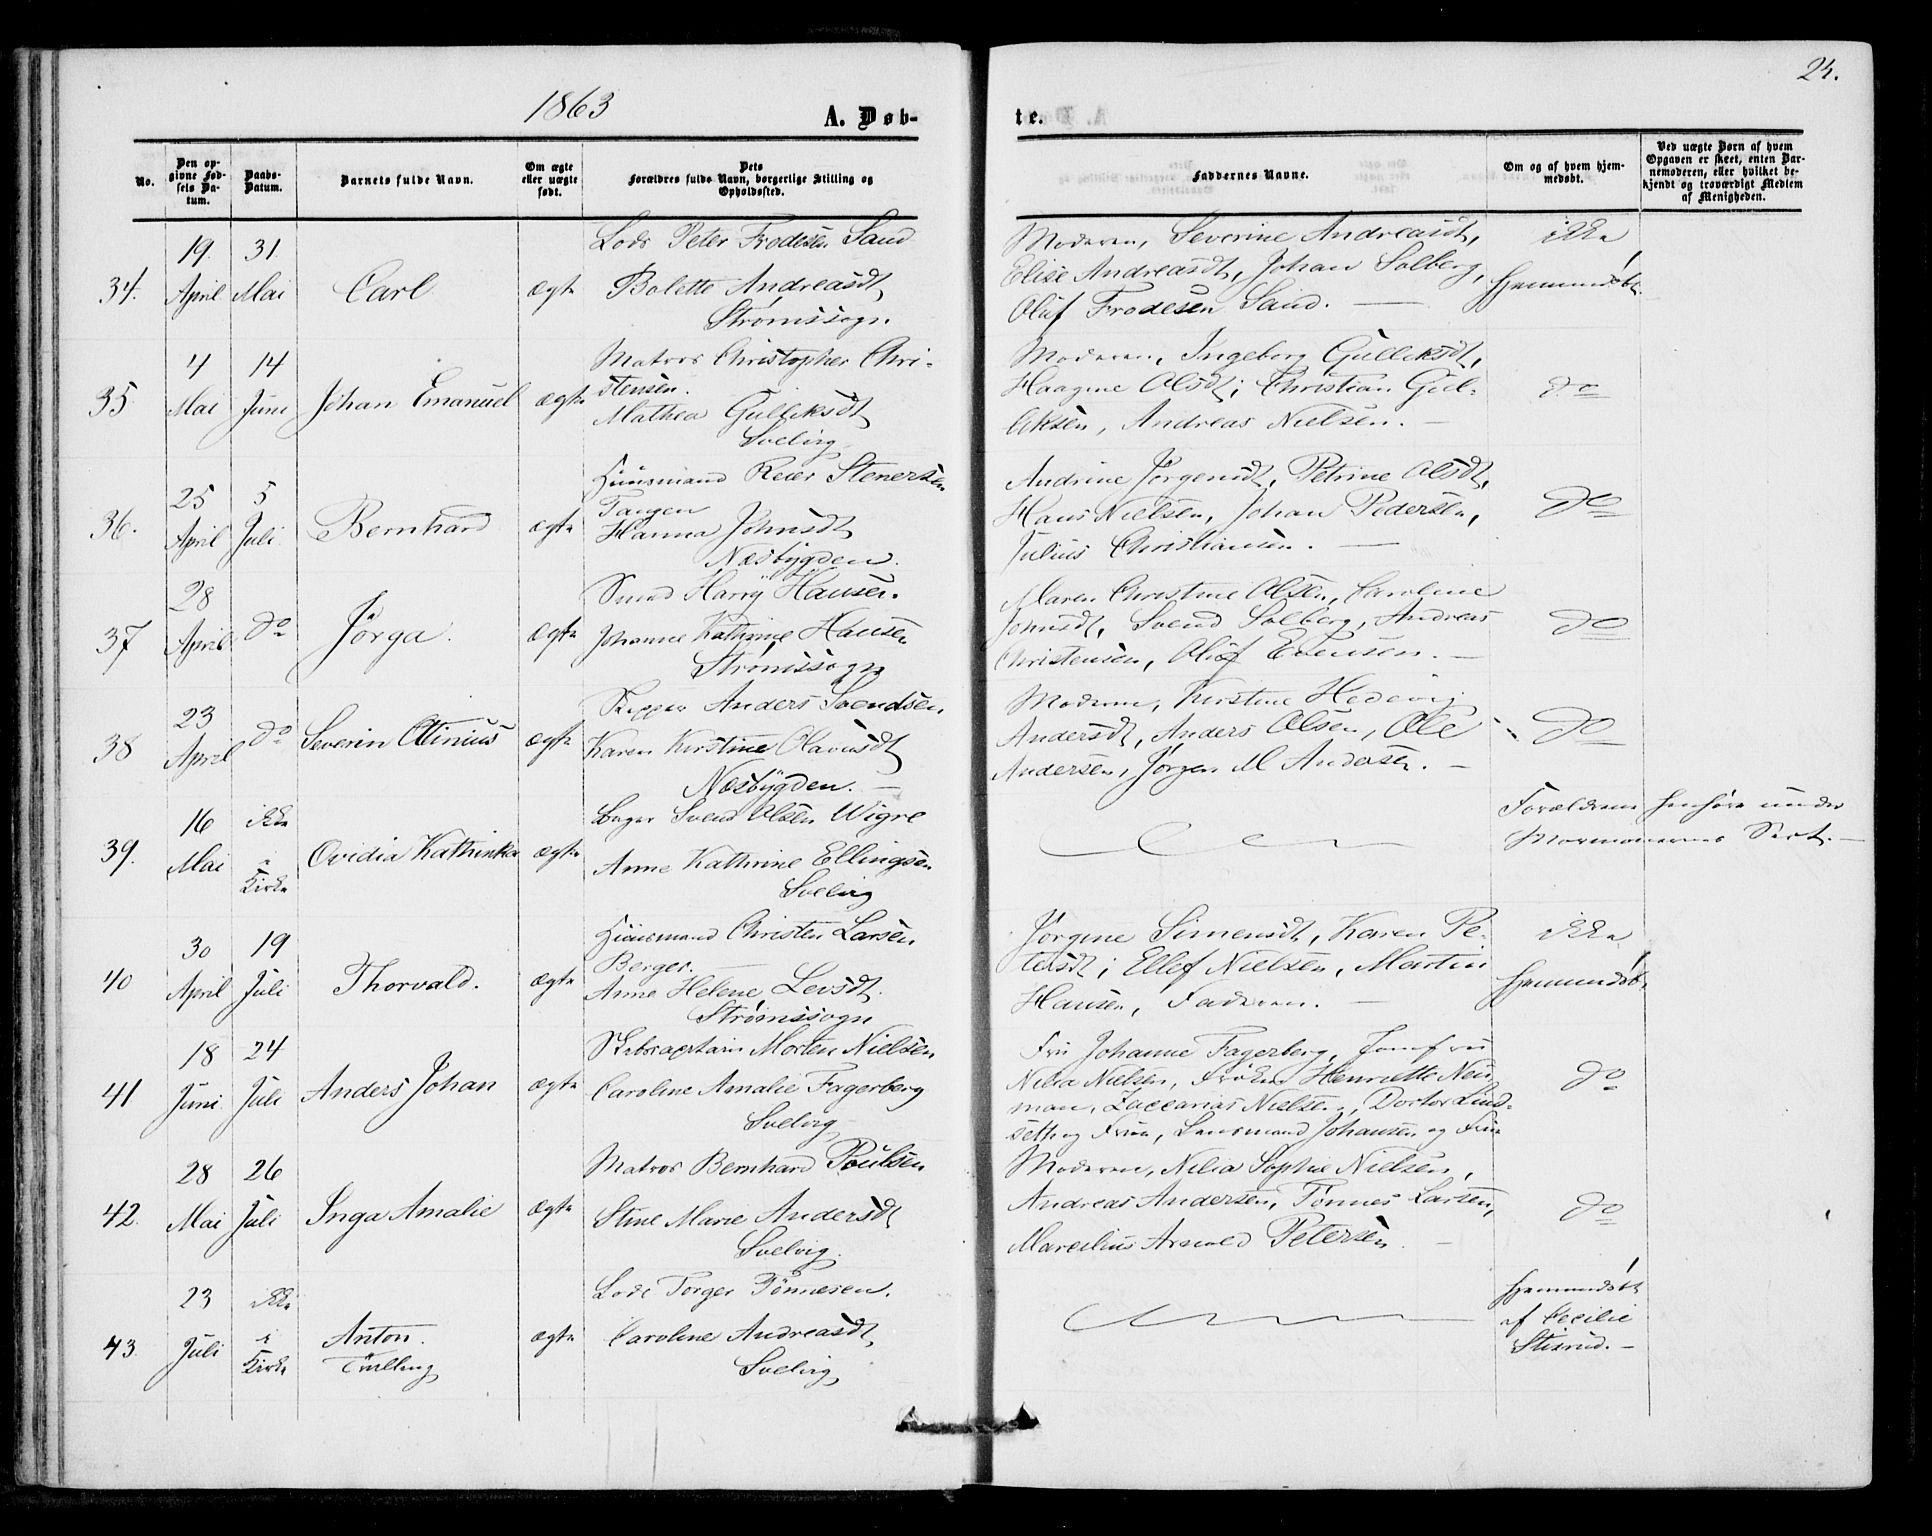 24.
1863
A. Døb-
te.
No.
Den op-
givne Fød-
sels Da-
tum.
Daabs-
Datum.
Barnets fulde Navn.
Om ægte
eller uægte
født.
Dets
Forældres fulde Navn, borgerlige Stilling og
Opholdssted.
Faddernes Navne.
Om og af hvem hjem-
medøbt.
Ved uægte Børn af hvem
Opgaven er skeet, enten Bar-
nemoderen, eller hvilket be-
kjendt og troværdigt Medlem
af Menigheden.
34.
19.
April
31.
Mai
Carl
ægte
Lods Peter Frodesen Sand
Bolette Andreasdt,
Strømssogn.
Moderen, Severine Andreasdt,
Elise Andreasdt, Johan Solberg,
Oluf Frodesen Sand. —
ikke
hjemmedøbt.
35
4
Mai
14
Juni
Johan Emanuel
ægte
Matros Christopher Chri-
stensen.
Mathea Gulliksdt
Svelvig
Moderen, Ingeborg Gulliksdt,
Haagine Olsdt; Christian Gul-
liksen, Andreas Nielsen. —
do
36.
25
April
5
Juli
Bernhard
ægte
Huusmand Reier Stenersen
Tangen
Hanna Johnsdt
Næsbygden.
Andrine Jørgensdt, Petrine Olsdt,
Hans Nielsen, Johan Pedersen,
Julius Christiansen. —
do
37
28
April
do
Jörga.
ægte
Smed Harry Hansen.
Johanne Kathrine Hansen
Strømssogn
Maren Christine Olsen, Caroline
Johnsdt, Svend Solberg, Andreas
Christensen, Oluf Evensen. —
do
38
23
April
do
Severin Otinius
ægte
Skipper Anders Svendsen
Karen Kirstine Olavusdt
Næsbygden. —
Moderen, Kirstine Hedevig
Andersdt, Anders Olsen, Ole
Andersen, Jörgen M Andersen. —
do
39.
16
Mai
ikke
i
Kirke
Ovidia Kathinka
ægte
Bager Svend Olsen Wigre
Anne Kathrine Ellingsen
Svelvig
Forældrene henhøre under
Mormonernes Sect. —
40
30
April
19
Juli
Thorvald.
ægte
Huusmand Christen Larsen
Berger. —
Anne Helene Levsdt.
Strømssogn
Jørgine Simensdt, Karen Pe-
tersdt; Ellef Nielsen, Martin
Hansen, Faderen. —
ikke
hjemmedøbt
41
18
Juni
24
Juli
Anders Johan
ægte
Skibscaptain Morten Nielsen
Caroline Amalie Fagerberg
Svelvig
Fru Johanne Fagerberg, Jomfru
Nilia Nielsen, Frøken Henriette Neu-
man, Zaccarias Nielsen, Doctor Lind-
seth og Frue, Lensmand Johansen og Frue
do
42.
28
Mai
26
Juli
Inga Amalie
ægte
Matros Bernhard Poulsen
Stine Marie Andersdt
Svelvig.
Moderen, Nilia Sophie Nielsen,
Andreas Andersen, Tønnes Larsen,
Marcilius Petersen. —
do
43.
23
Juli
ikke
i
Kirke
Anton.
Tvilling
ægte
Lods Torger Tönnesen.
Caroline Andreasdt,
Svelvig,
hjemmedøbt
af Cecilie
Stisrud. —